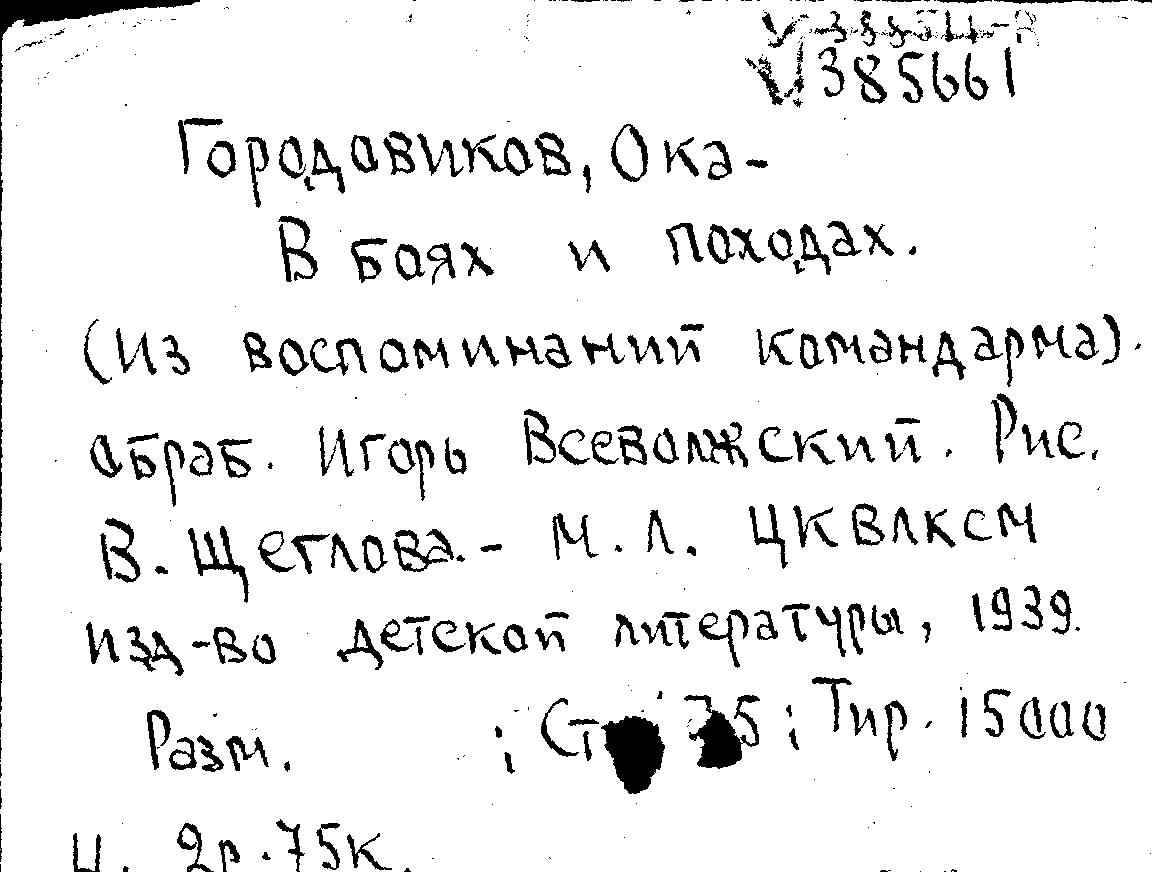 385661
Городовиков, Ока-
В боях и походах.
(Из воспоминаний командарма).
обраб. Игорь Всеволжский. Рис.
В. Щеглова.- М. Л. ЦКВЛКСМ
изд-во детской литературы, 1939.
Разм. ; ; Тир. 15000
Ц. 2р.75к.